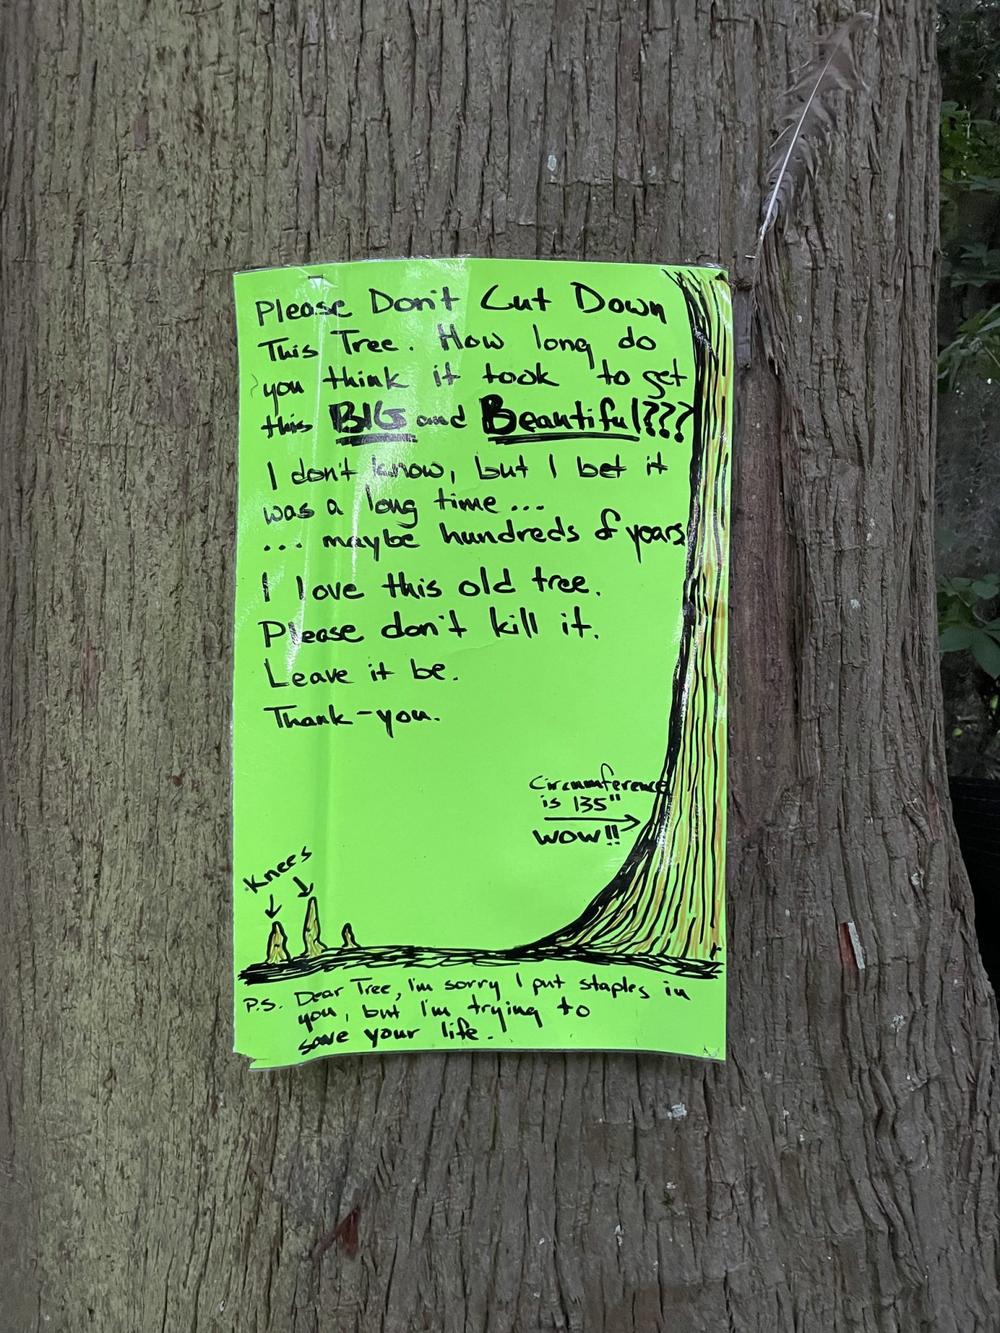 Please Don't Cut Down
This Tree. How long do
you think it took to get
this BIG and Beautiful???
I don't know, but I bet it
was a long time...
... maybe hundreds of years
I love this old tree.
Please don't kill it.
Leave it be.
Thank-you.
Circumference
is 135"
WOW!!
Knees
P.S. Dear Tree, I'm sorry I put staples in
you, but I'm trying to
save your life.